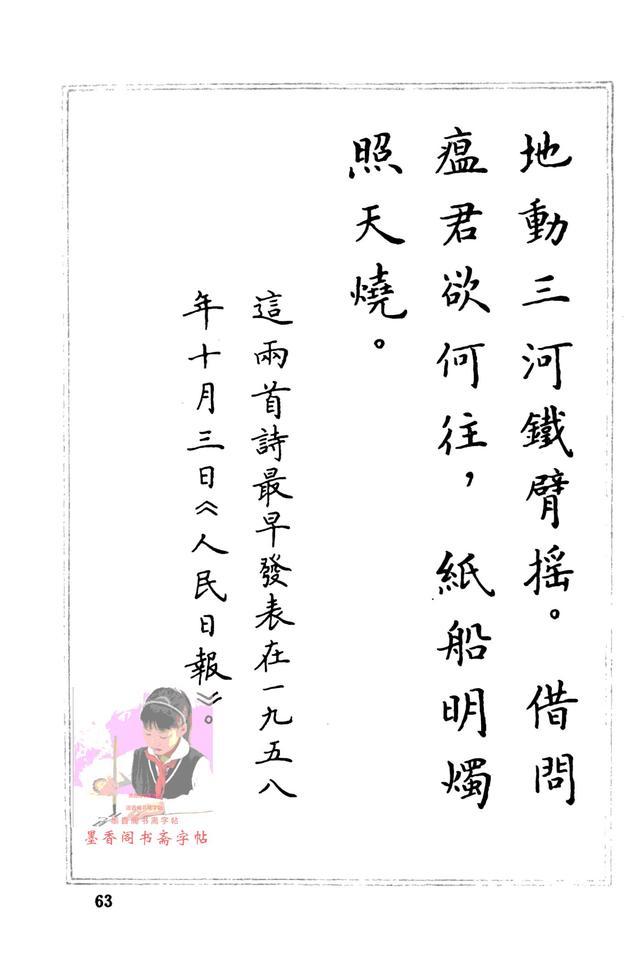 地動三河鐵臂摇。借問
瘟君欲何往，紙船明燭
照天燒。
這兩首詩最早發表在一九五八
年十月三日《人民日報》。
墨香阁书斋字帖
墨香阁书斋字帖
63